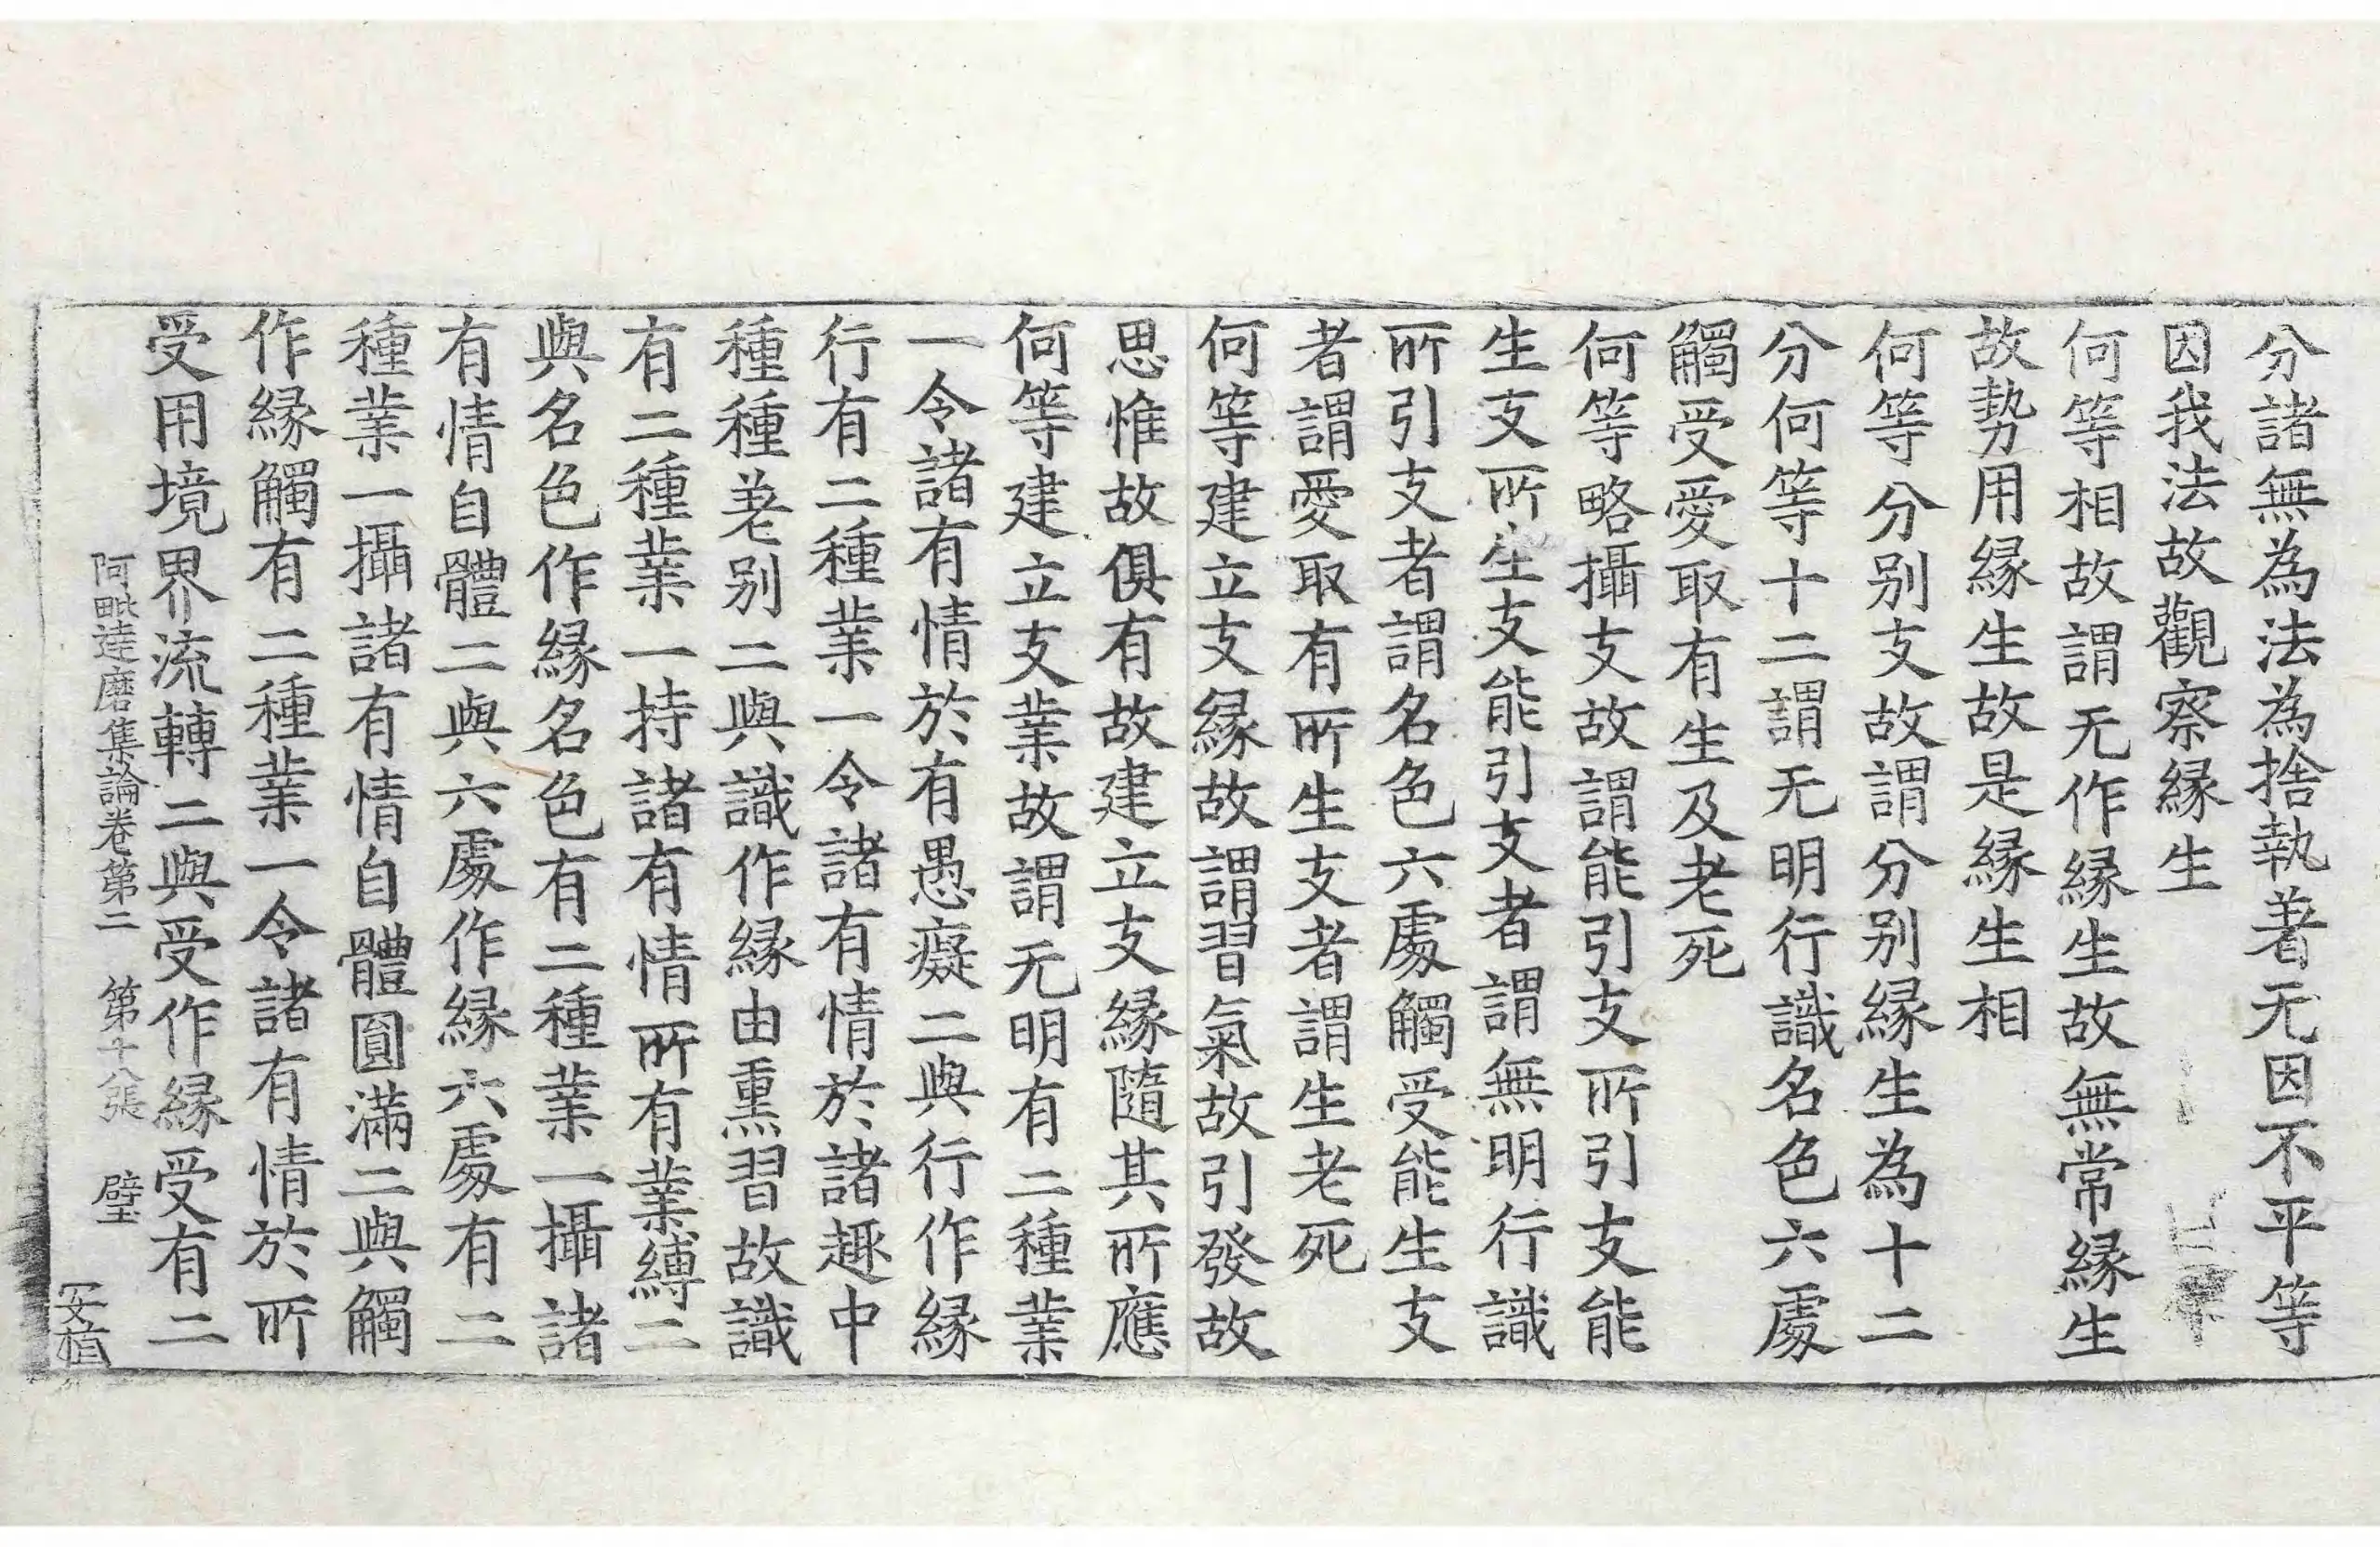 分諸無為法為捨執著无因不平等
因我法故觀察緣生
何等相故謂无作緣生故無常緣生
故勢用緣生故是緣生相
何等分別支故謂分別緣生為十二
分何等十二謂无明行識名色六處
觸受愛取有生及老死
何等略攝支故謂能引支所引支能
生支所生支能引支者謂無明行識
所引支者謂名色六處觸受能生支
者謂愛取有所生支者謂生老死
何等建立支緣故謂習氣故引發故
思惟故俱有故建立支緣隨其所應
何等建立支業故謂无明有二種業
一令諸有情於有愚癡二與行作緣
行有二種業一令諸有情於諸趣中
種種差別二與識作緣由熏習故識
有二種業一持諸有情所有業縛二
與名色作緣名色有二種業一攝諸
有情自體二與六處作緣六處有二
種業一攝諸有情自體圓滿二與觸
作緣觸有二種業一令諸有情於所
受用境界流轉二與受作緣受有二
阿毗達磨集論卷第二 第十八張 璧
安植